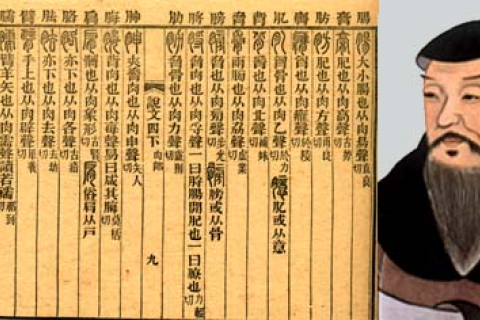 腸 大小腸也从肉昜聲直良切
膏 肥也从肉高聲古勞切
肪 肥也从肉方聲甫良切
膺 匈也从肉聲於陵切
肊 匈骨也从肉乙聲於力切 肊或从意
背 也从肉北聲補妹切
脅 兩膀也从肉劦聲虛業切
膀 脅也从肉旁聲步光切 膀或从骨
脟 脅肉也从肉寽聲一曰脟腸閒肥也一曰膫也力輟切
肋 脅骨也从肉力聲盧則切
說文四下 肉部 九
胂 夾脊肉也从肉申聲矢人切
脢 背肉也从肉每聲易曰咸其脢莫桮切
肩 髆也从肉象形古賢切 俗肩从戶
胳 亦下也从肉各聲古洛切
胠 亦下也从肉去聲去劫切
臂 手上也从肉辟聲卑義切
臑 臂羊矢也从肉需聲讀若襦那到切